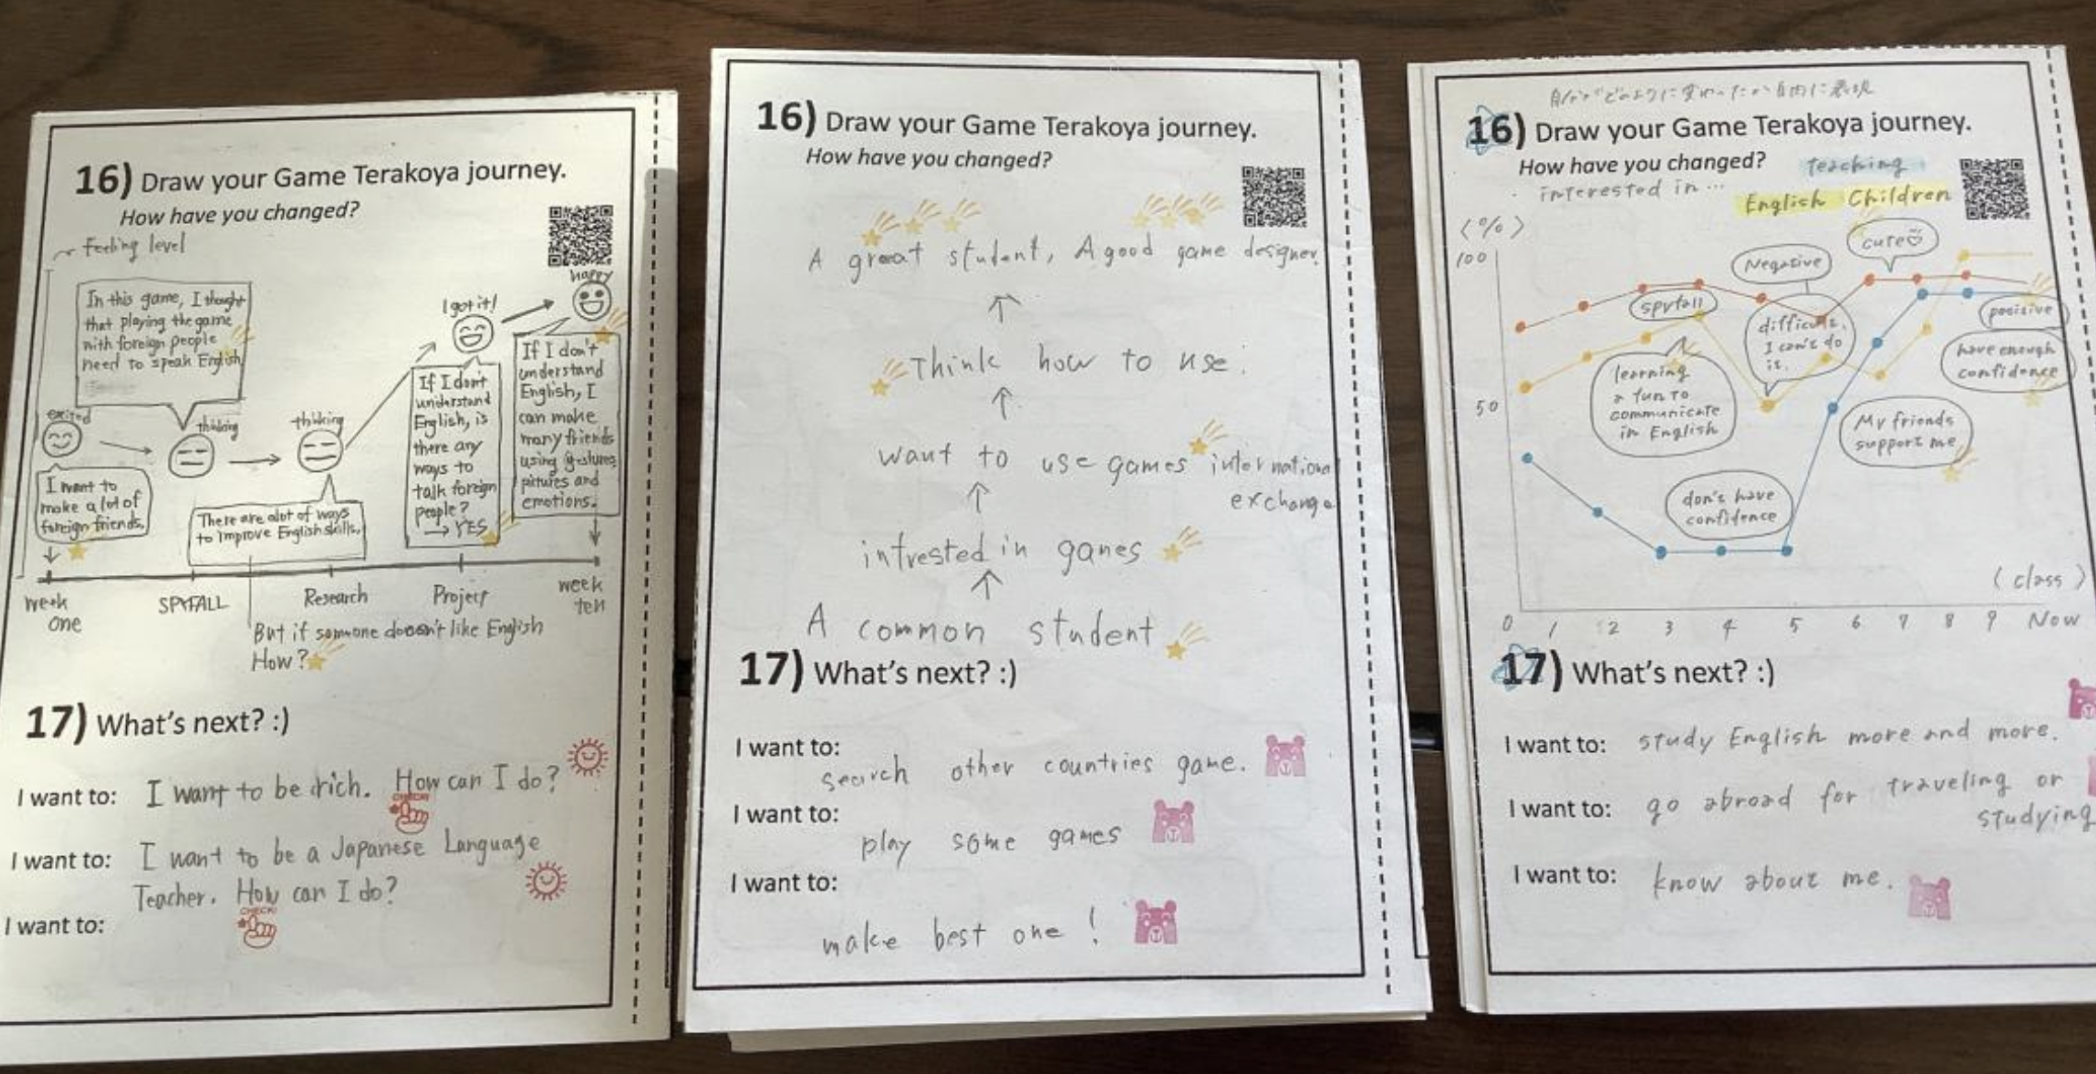 16) Draw your Game Terakoya journey.
How have you changed?
Feeling level
In this game, I thought
that playing the game
with foreign people
need to speak English
exited
I want to
make a lot of
foreign friends.
thinking
thinking
There are alot of ways
to improve English skills.
I got it!
If I don't
understand
English, is
there any
ways to
talk foreign
people?
→ YES
happy
If I don't
understand
English, I
can make
many friends
using gestures,
pictures and
emotions.
week
one
SPYFALL
Research
Project
week
ten
But if someone doesn't like English
How?
17) What's next? :)
I want to: I want to be rich. How can I do?
CHECK!
I want to: I want to be a Japanese Language
Teacher. How can I do?
CHECK!
I want to:
16) Draw your Game Terakoya journey.
How have you changed?
A great student, A good game designer.
↑
Think how to use.
↑
want to use games international
exchange
↑
intrested in games
↑
A common student
17) What's next? :)
I want to:
search other countries game.
I want to:
play some games
I want to:
make best one!
自分がどのように変わったか自由に表現
16) Draw your Game Terakoya journey.
How have you changed?
teaching
interested in...
English Children
(%)
100
50
cute
Negative
spyfall
difficult.
I can't do
it.
learning
a fun to
communicate
in English
positive
have enough
confidence
My friends
support me
don't have
confidence
(class)
0 1 2 3 4 5 6 7 8 9 Now
17) What's next? :)
I want to: study English more and more.
I want to: go abroad for traveling or
studying
I want to: know about me.